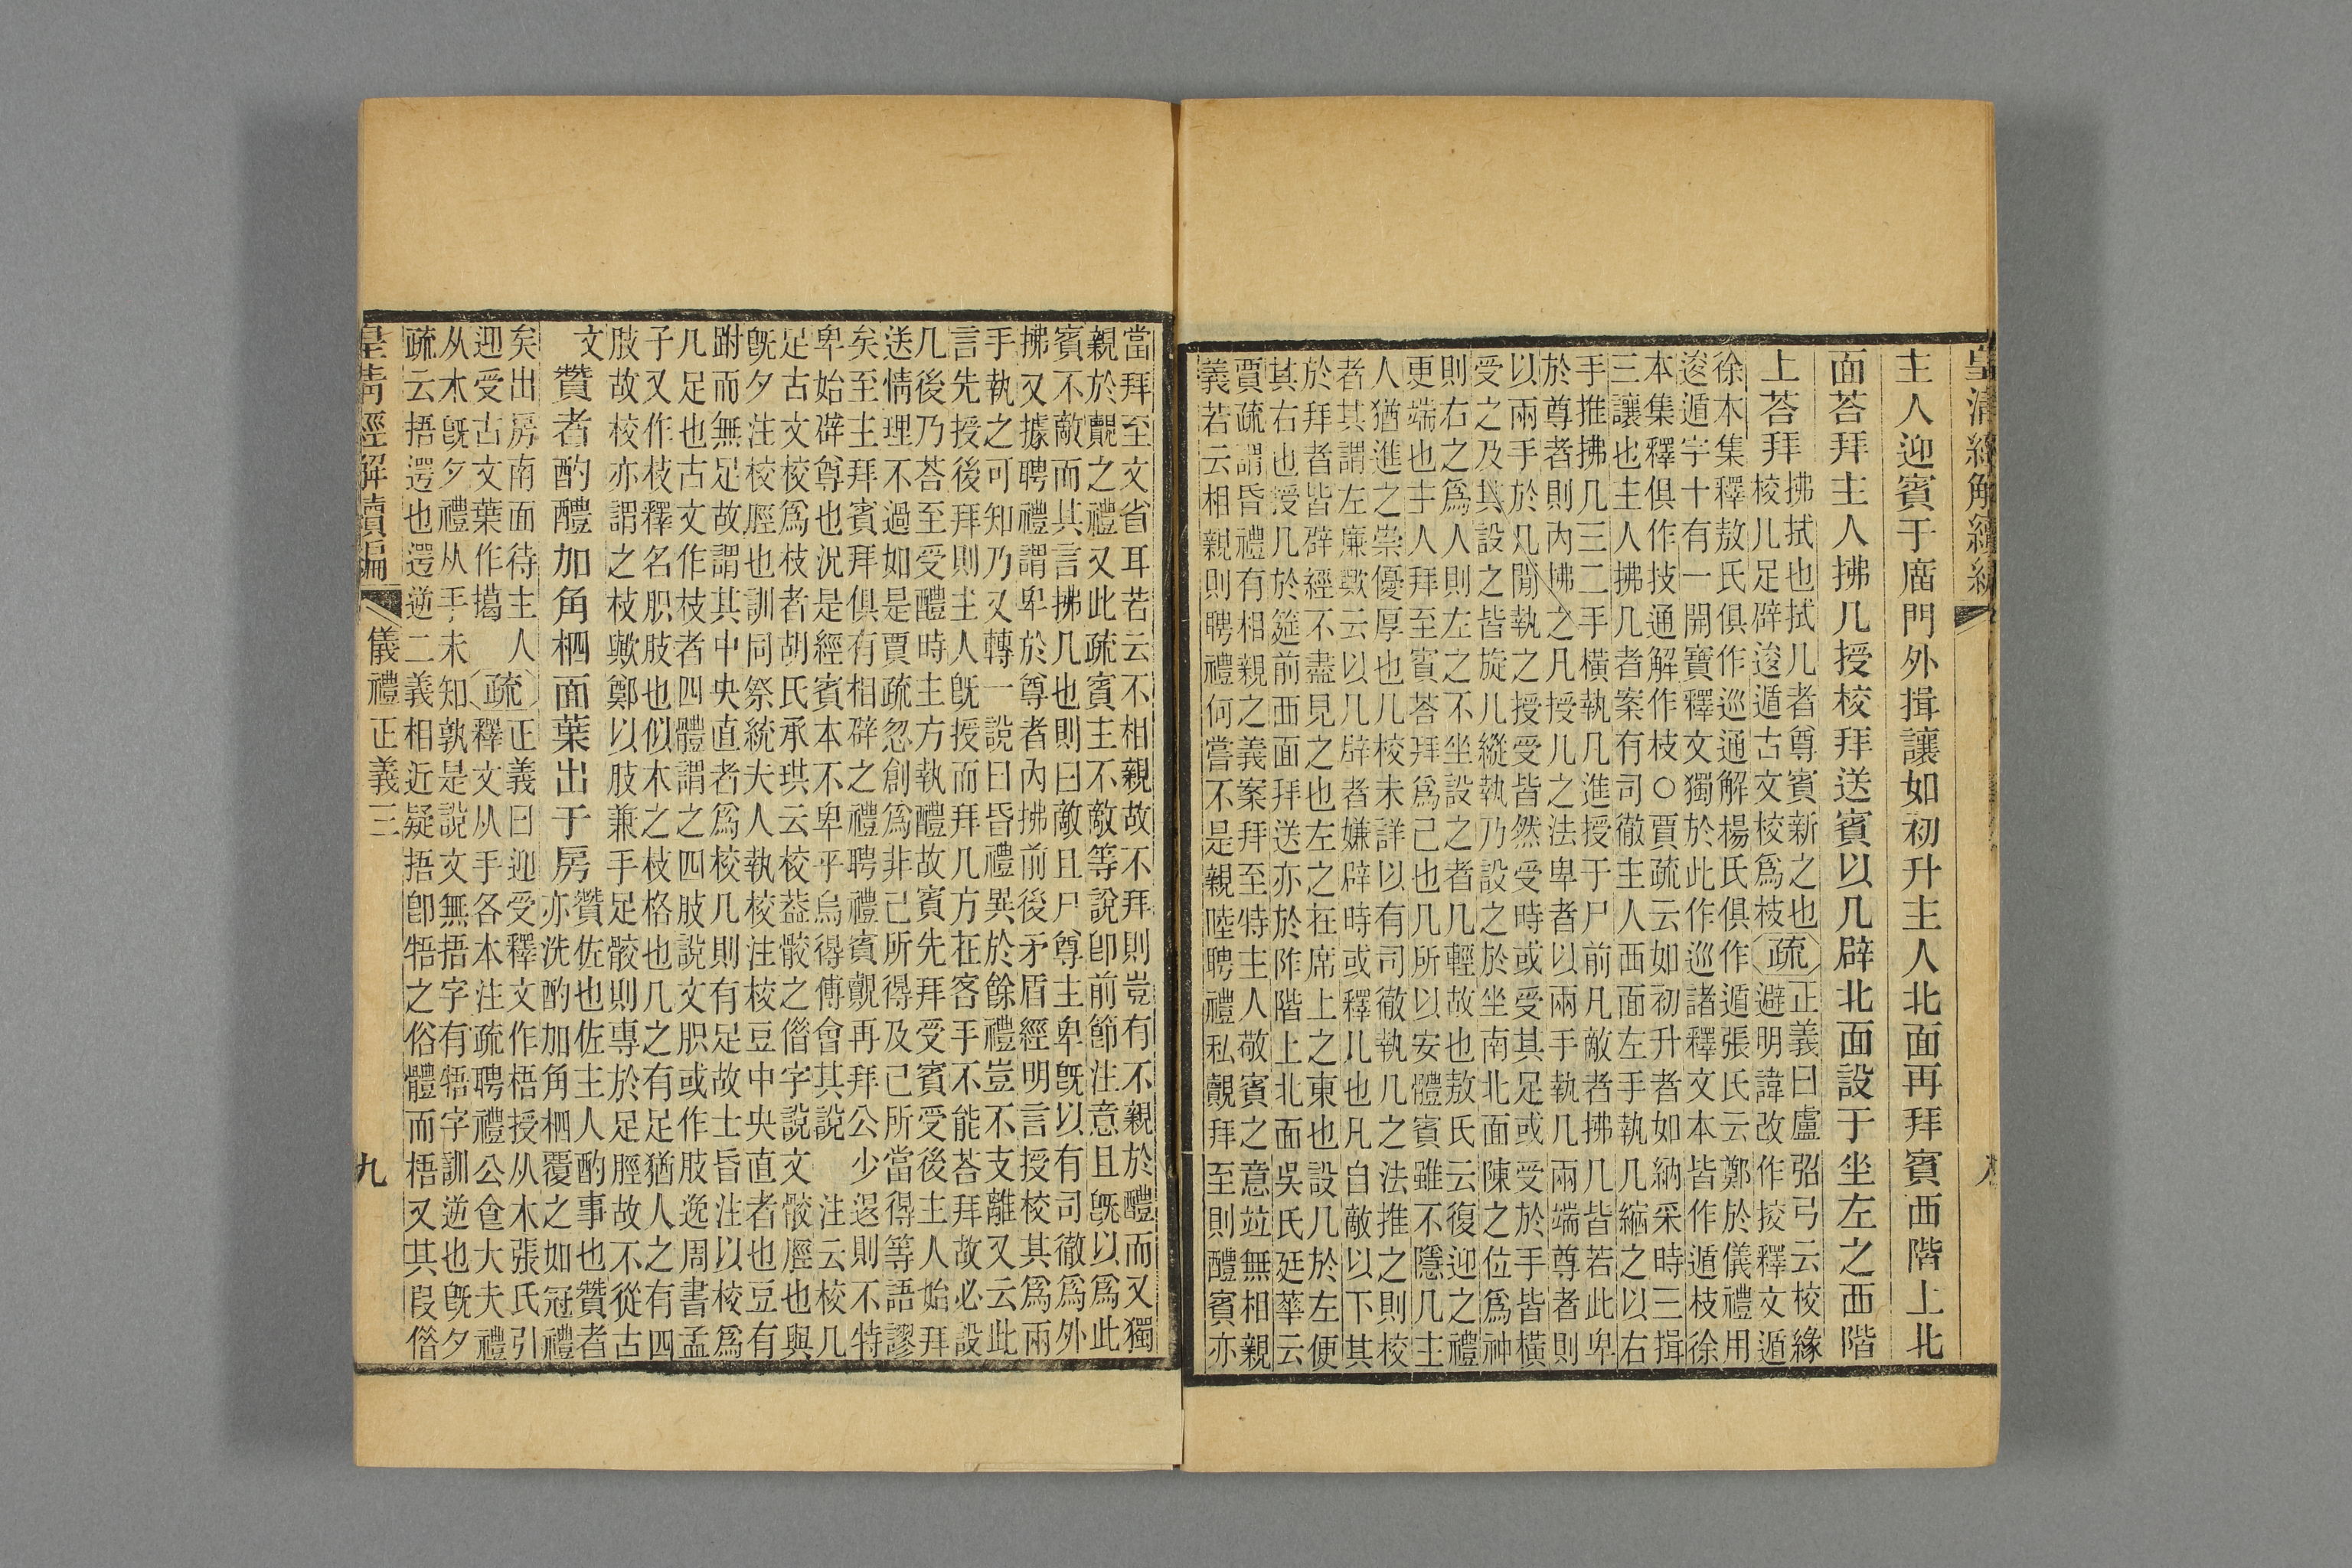 皇清經解續編
主人迎賓于廟門外揖讓如初升主人北面再拜賓西階上北
面荅拜主人拂几授校拜送賓以几辟北面設于坐左之西階
上荅拜
拂拭也拭几者尊賓新之也
校几足辟逡遁古文校爲枝
疏
正義曰盧弨弓云校緣
避明諱改作挍釋文遁
徐本集釋敖氏俱作巡通解楊氏俱作遁張氏云鄭於儀禮用
逡遁字十有一開寶釋文獨於此作巡諸釋文本皆作遁枝徐
本集釋俱作技通解作枝○賈疏云如初升者如納采時三揖
三讓也主人拂几者案有司徹主人西面左手執几縮之以右
手推拂几三二手橫執几進授于尸前凡敵者拂几皆若此卑
於尊者則內拂之凡授几之法卑者以兩手執几兩端尊者則
以兩手於几閒執之授受皆然受時或受其足或受於手皆橫
受之及其設之皆旋几縱執乃設之於坐南北面陳之位爲神
則右之爲人則左之不坐設之者几輕故也敖氏云復迎之禮
更端也主人拜至賓荅拜爲己也几所以安體賓雖不隱几主
人猶進之崇優厚也几校未詳以有司徹執几之法推之則校
者其謂左廉歟云以几辟者嫌辟時或釋几也凡自敵以下其
於拜者皆辟經不盡見之也左之在席上之東也設几於左便
其右也授几於筵前西面拜送亦於阼階上北面吳氏廷華云
賈疏謂昏禮有相親之義案拜至特主人敬賓之意竝無相親
義若云相親則聘禮何嘗不是親陸聘禮私覿拜至則醴賓亦
當拜至文省耳若云不相親故不拜則豈有不親於醴而又獨
親於覿之禮又此疏賓主不敵等說卽前節注意且旣以爲此
賓不敵而其言拂几也則曰敵且尸尊主卑旣以有司徹爲外
拂又據聘禮謂卑於尊者內拂前後矛盾經明言授校其爲兩
手執之可知乃又轉一說曰昏禮異於餘禮豈不支離又云此
言先授後拜則主人旣授而拜几方在客手不能荅拜故必設
几後乃荅至受醴時主方執醴故賓先拜受賓受後主人始拜
送情理不過如是賈疏忽創爲非己所得及己所當得等語謬
矣至主拜賓拜俱有相辟之禮聘禮賓覿再拜公少退則不特
卑始辟尊也況是經賓本不卑乎烏得傅會其說　注云校几
足古文校爲枝者胡氏承珙云校葢骹之偺字說文骹脛也與
旣夕注校脛也訓同祭統夫人執校注校豆中央直者也豆有
跗而無足故謂其中央直者爲校几則有足故士昏注以校爲
几足也古文作枝者四體謂之四肢說文胑或作肢逸周書孟
子又作枝釋名胑肢也似木之枝格也几之有足猶人之有四
肢故校亦謂之枝歟鄭以肢兼手足骹則專於足脛故不從古
文
贊者酌醴加角柶面葉出于房
贊佐也佐主人酌事也贊者
亦洗酌加角柶覆之如冠禮
矣出房南面待主人
迎受古文葉作擖
疏
正義曰迎受釋文作梧授从木張氏引
釋文从手各本注疏聘禮公食大夫禮
从木旣夕禮从手未知孰是說文無捂字有啎字訓逆也旣夕
疏云捂遻也遻逆二義相近疑捂卽啎之俗體而梧又其叚偺
皇清經解續編
儀禮正義三
九